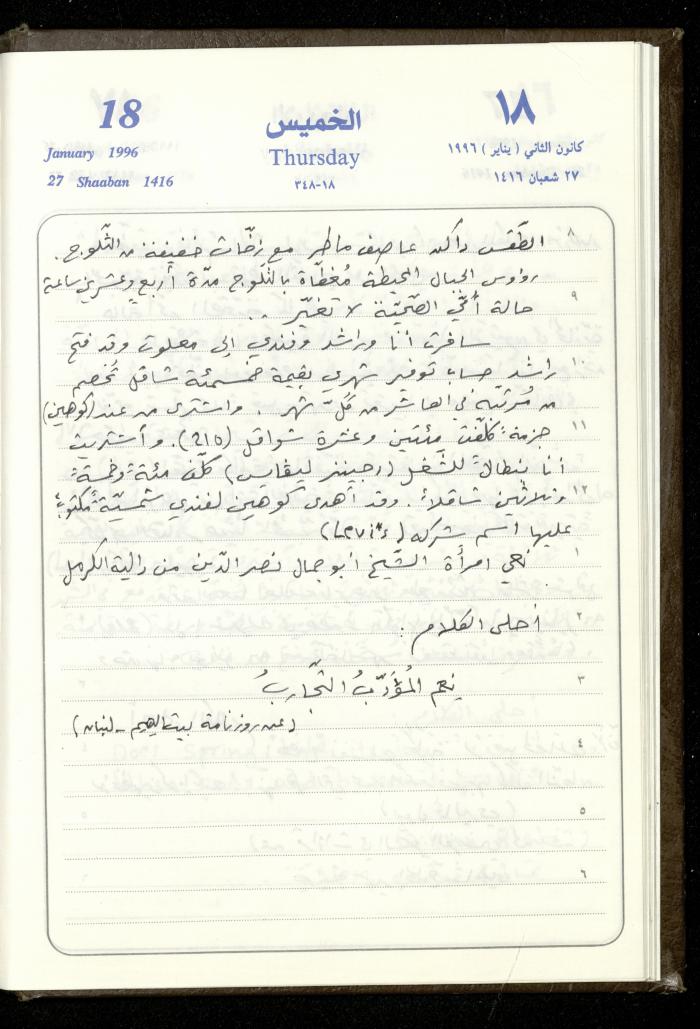 18
January 1996
27 Shaaban 1416
الخميس
Thursday
٣٤٨-١٨
١٨
كانون الثاني ( يناير ) ١٩٩٦
٢٧ شعبان ١٤١٦
٨ الطَقس داكن عاصف ماطر مع زخّات خفيفة من الثّلوج .
رؤوس الجبال المحيطة مُغطّاة بالثلوج مدّة أربع وعشرين ساعة
٩ حالة أمّي الصّحيّة لا تغيّر ..
سافرت أنا وراشد وفندي إلى معلوت وقد فتح
١٠ راشد حساب توفير شهري بقيمة خمسمئة شاقل تُخصم
من مُرتّبه في العاشر من كلّ شهر . واشترى من عند (كوهين)
١١ جزمة كلّفت مئتين وعشرة شواقل (210). وأشتريت
أنا بنطالاً للشّغل (رجينز ليڤايس) كلّف مئة وخمسة
١٢ وثلاثين شاقلاً . وقد أهدى كوهين لفندي شمسيّة مكتوب
عليها اسم شركة (Levi's)
١ نعي امرأة الشّيخ أبو جمال نصر الدّين من دالية الكرمل
٢ أحلى الكلام :
٣ نِعم المُؤدّبُ التّجاربُ
(عن روزنامة بيت لهيم - لبنان)
٤
٥
٦